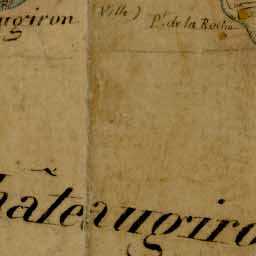 ugiron
Ville)
Pt. de la Roche
hateaugiro